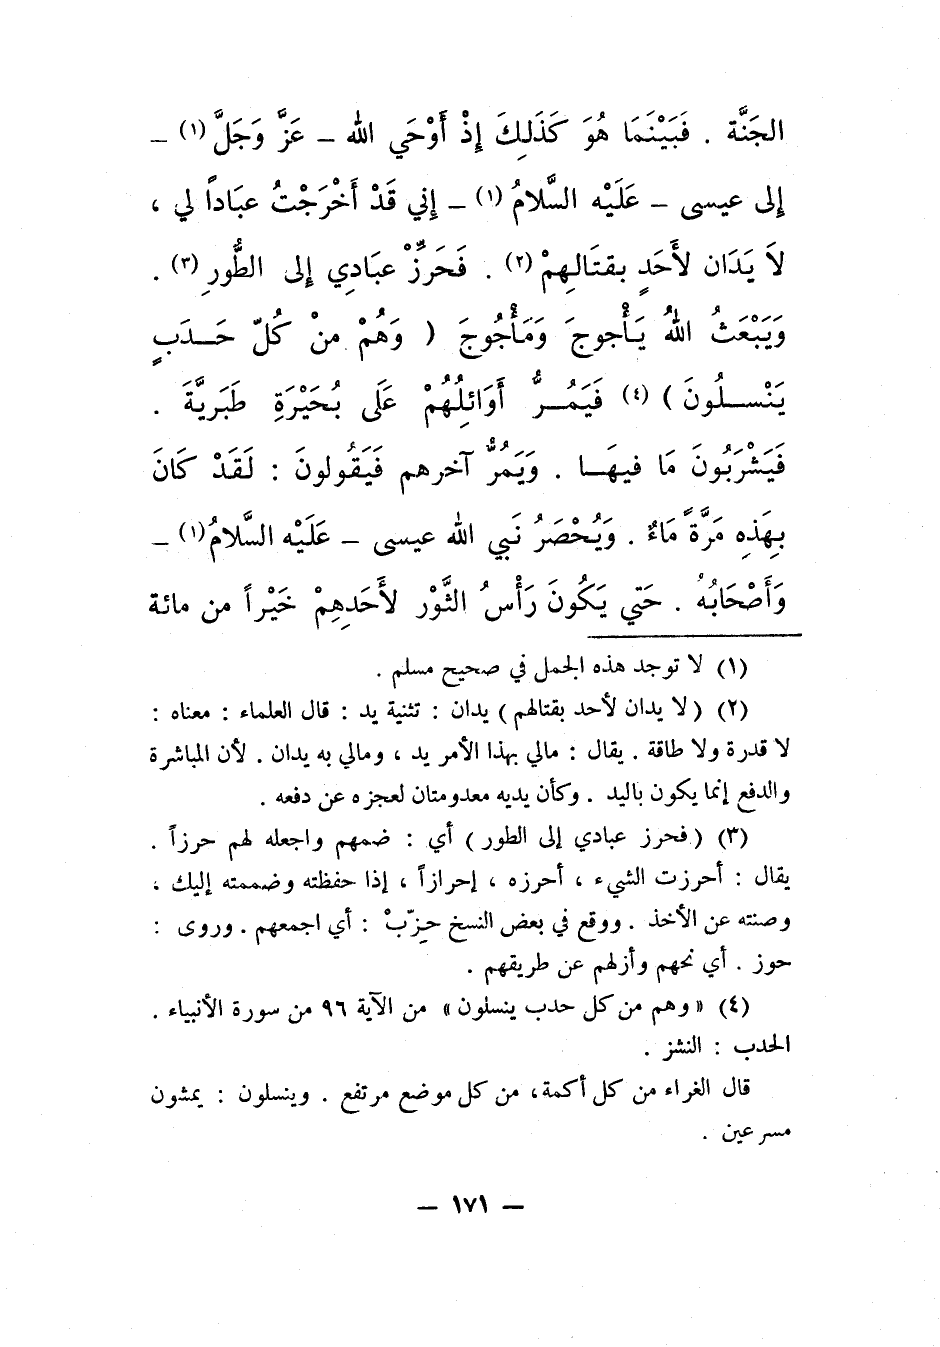 الجَنَّة . فَبَيْنَمَا هُوَ كَذَلِكَ إِذْ أَوْحَي الله – عَزَّ وَجَلَّ (١) –
إلى عيسى – عَلَيْه السَّلامُ (١) – إني قَدْ أَخْرَجْتُ عبَاداً لي ،
لاَ يَدَان لأَحَدٍ بقتَالِهِمْ (٢) . فَحَرِّزْ عبَادِي إلى الطُّورِ (٣) .
وَيَبْعَثُ اللهُ يَأْجوجَ وَمَأْجُوجَ ( وَهُمْ منْ كُلّ حَدَبٍ
يَنْسلُونَ ) (٤) فَيَمُرُّ أَوَائِلُهُمْ عَلَى بُحَيْرَةِ طَبَرِيَّةَ .
فَيَشْرَبُونَ مَا فيهَا . وَيَمُرُّ آخرهم فَيَقُولونَ : لَقَدْ كَانَ
بِهَذِه مَرَّةً مَاءٌ . وَيُحْصَرُ نَبي الله عيسى – عَلَيْه السَّلامُ (١) –
وَأَصْحَابُهُ . حَتي يَكُونَ رَأْسُ الثَّوْر لأَحَدِهِمْ خَيْراً من مائة
(١) لا توجد هذه الجمل في صحيح مسلم .
(٢) ( لا يدان لأحد بقتالهم ) يدان : تثنية يد : قال العلماء : معناه :
لا قدرة ولا طاقة . يقال : مالي بهذا الأمر يد ، ومالي به يدان . لأن المباشرة
والدفع إنما يكون باليد . وكأن يديه معدومتان لعجزه عن دفعه .
(٣) ( فحرز عبادي إلى الطور ) أي : ضمهم واجعله لهم حرزاً .
يقال : أحرزت الشيء ، أحرزه ، إحرازاً ، إذا حفظته وضممته إليك ،
وصنته عن الأخذ . ووقع في بعض النسخ حزّبْ : أي اجمعهم . وروى :
حوز . أي نحهم وأزلهم عن طريقهم .
(٤) « وهم من كل حدب ينسلون » من الآية ٩٦ من سورة الأنبياء .
الحدب : النشز .
قال الغراء من كل أكمة، من كل موضع مرتفع . وينسلون : يمشون
مسرعين .
– ١٧١ –